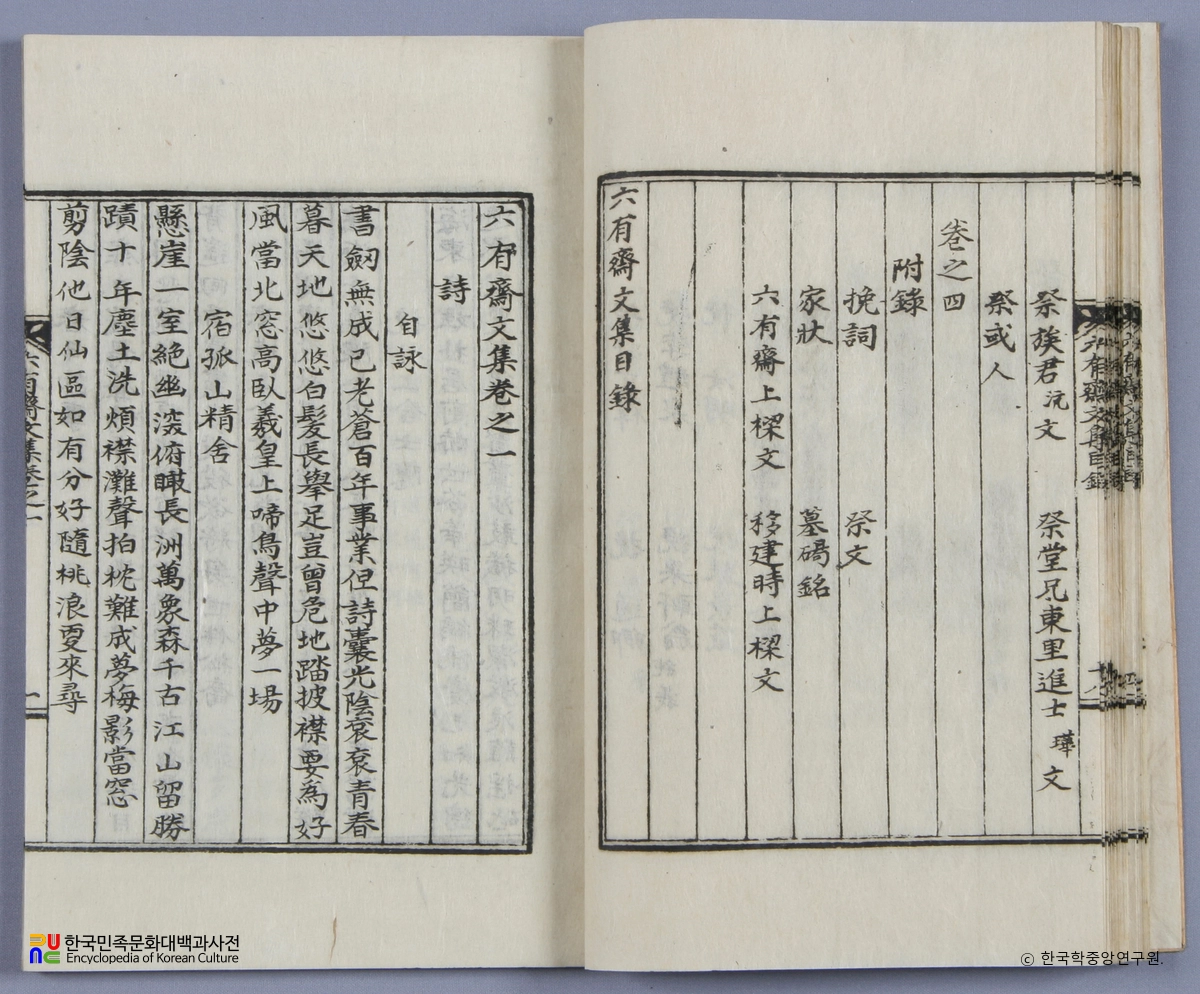 祭族君沅文 祭堂兄東里進士璍文
祭或人
卷之四
附錄
挽詞 祭文
家狀 墓碣銘
六有齋上樑文 移建時上樑文
六有齋文集目錄
六有齋文集卷之一
詩
自詠
書劒無成已老蒼百年事業但詩囊光陰袞袞靑春
暮天地悠悠白髮長擧足豈曾危地踏披襟要爲好
風當北窓高臥羲皇上啼鳥聲中夢一場
宿孤山精舍
懸崖一室絶幽深俯瞰長洲萬象森千古江山留勝
蹟十年塵土洗煩襟灘聲拍枕難成夢梅影當窓
剪陰他日仙區如有分好隨桃浪更來尋
六有齋文集卷之一
一
한국민족문화대백과사전
Encyclopedia of Korean Culture
ⓒ 한국학중앙연구원.